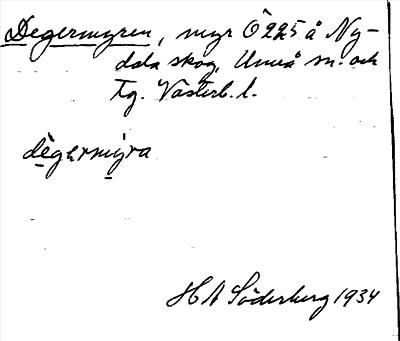 Degermyren, myr Ö 225 å Ny-
dala skog, Umeå sn. och
tg. Västerb. l.
dègermýra
H A Söderberg 1934